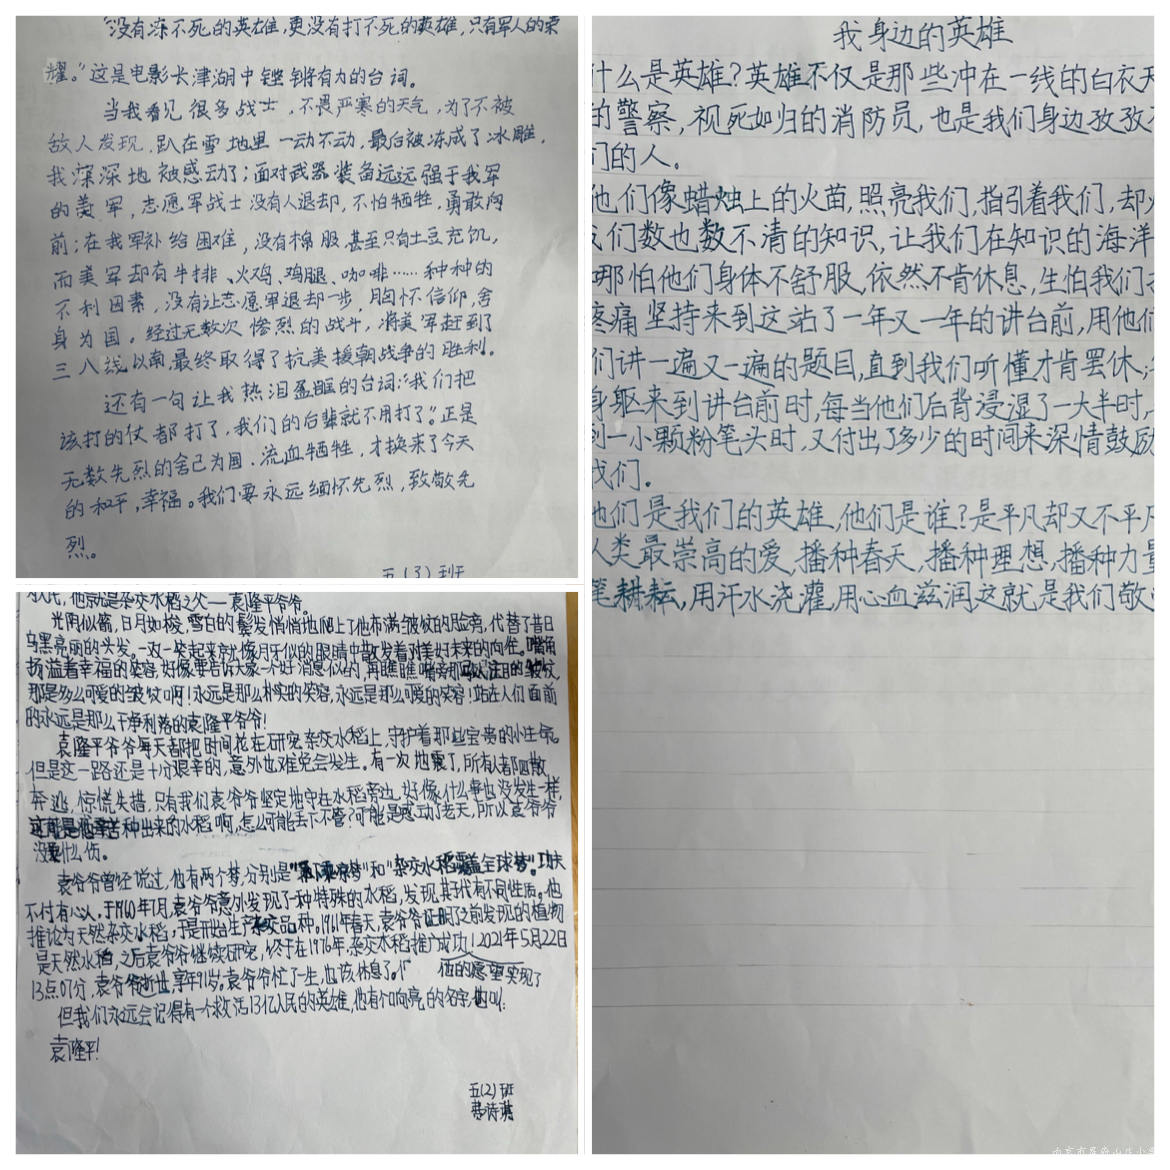 "没有冻不死的英雄,更没有打不死的英雄,只有军人的荣
耀。"这是电影长津湖中铿锵有力的台词。
当我看见很多战士,不畏严寒的天气,为了不被
敌人发现,趴在雪地里一动不动,最后被冻成了冰雕,
我深深地被感动了;面对武器装备远远强于我军
的美军,志愿军战士没有人退却,不怕牺牲,勇敢向
前;在我军补给困难,没有棉服,甚至只有土豆充饥,
而美军却有牛排、火鸡、鸡腿、咖啡……种种的
不利因素,没有让志愿军退却一步,胸怀信仰,舍
身为国。经过无数次惨烈的战斗,将美军赶到了
三八线以南,最终取得了抗美援朝战争的胜利。
还有一句让我热泪盈眶的台词:"我们把
该打的仗都打了,我们的后辈就不用打了"。正是
无数先烈的舍己为国、流血牺牲,才换来了今天
的和平,幸福。我们要永远缅怀先烈,致敬先
烈。
五(3)班
为人民,他就是杂交水稻之父——袁隆平爷爷。
光阴似箭,日月如梭,雪白的鬓发悄悄地爬上了他布满皱纹的脸旁,代替了昔日
乌黑亮丽的头发。一双一笑起来就像月牙似的眼睛中散发着对美好未来的向往。嘴角
扬溢着幸福的笑容,好像要告诉大家一个好消息似的,再瞧瞧嘴旁那引人注目的皱纹
那是多么可爱的皱纹啊!永远是那么朴实的笑容,永远是那么可爱的笑容!站在人们面前
的永远是那么干净利落的袁隆平爷爷!
袁隆平爷爷每天都把时间花在研究杂交水稻上,守护着那些宝贵的小生命。
但是这一路还是十分艰辛的,意外也难免会发生。有一次地震了,所有人都四散
奔逃,惊慌失措,只有我们袁爷爷坚定地守在水稻旁边,好像什么事也没发生一样,
这可是他辛苦种出来的水稻啊,怎么可能丢下不管?可能是感动了老天,所以袁爷爷
没受什么伤。
袁爷爷曾经说过,他有两个梦,分别是"禾下乘凉梦"和"杂交水稻覆盖全球梦"。功夫
不付有心人。于1960年7月,袁爷爷意外发现了一种特殊的水稻,发现其子代有不同性质。他
推论为天然杂交水稻,于是开始生产杂交品种。1961年春天,袁爷爷证明了之前发现的植物
是天然水稻,之后袁爷爷继续研究,终于在1976年,杂交水稻推广成功!2021年5月22日
13点07分,袁爷爷逝世,享年91岁。袁爷爷忙了一生,也该休息了。他的愿望实现了
但我们永远会记得有一个救活13亿人民的英雄,他有个响亮的名字,他叫:
袁隆平!
五(2)班
我身边的英雄
什么是英雄?英雄不仅是那些冲在一线的白衣天
的警察,视死如归的消防员,也是我们身边孜孜不
们的人。
他们像蜡烛上的火苗,照亮我们,指引着我们,却
我们数也数不清的知识,让我们在知识的海洋
哪怕他们身体不舒服,依然不肯休息,生怕我们
疼痛坚持来到这站了一年又一年的讲台前,用他们
们讲一遍又一遍的题目,直到我们听懂才肯罢休;
身躯来到讲台前时,每当他们后背浸湿了一大半时,
到一小颗粉笔头时,又付出了多少的时间来深情鼓励
我们.
他们是我们的英雄,他们是谁?是平凡却又不平凡
人类最崇高的爱,播种春天,播种理想,播种力量
笔耕耘,用汗水浇灌,用心血滋润这就是我们敬